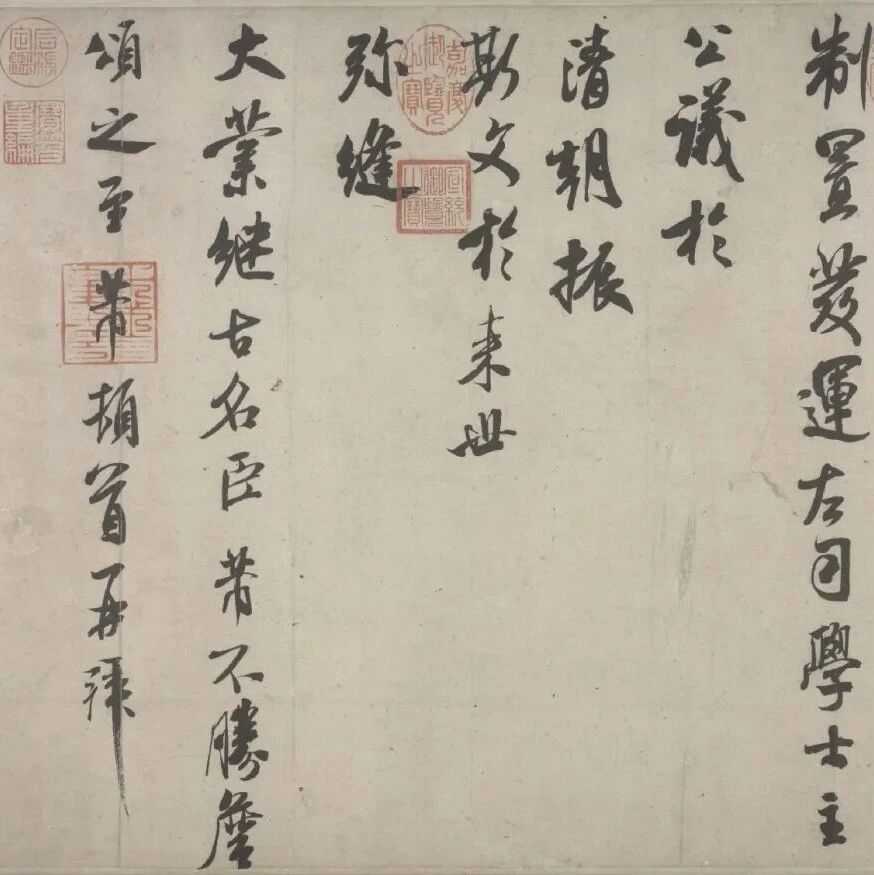 制置發運左司學士主
公議於
清朝振
斯文於来世
弥縫
大業継古名臣芾不勝詹
頌之至芾頓首再拜
嘉慶御覽之寶
宣統御覽之寶